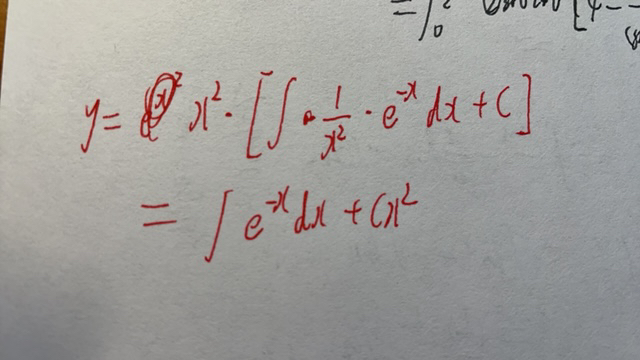 = ∫₀²
y = x² · [∫ 1/x² · e^(-x) dx + C]
= ∫ e^(-x) dx + Cx²